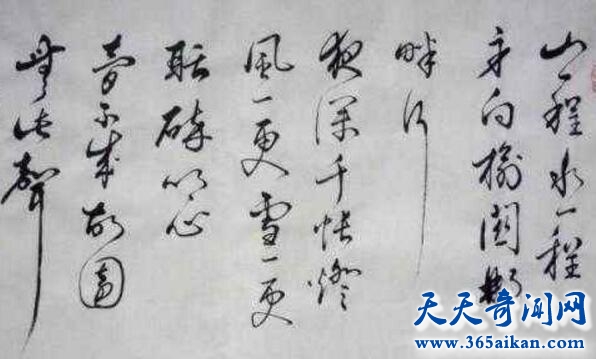 山一程水一程
身向榆関那
畔行
夜深千帳燈
風一更雪一更
聒碎乡心
夢不成故園
無此聲
天天奇闻网
www.365aikan.com